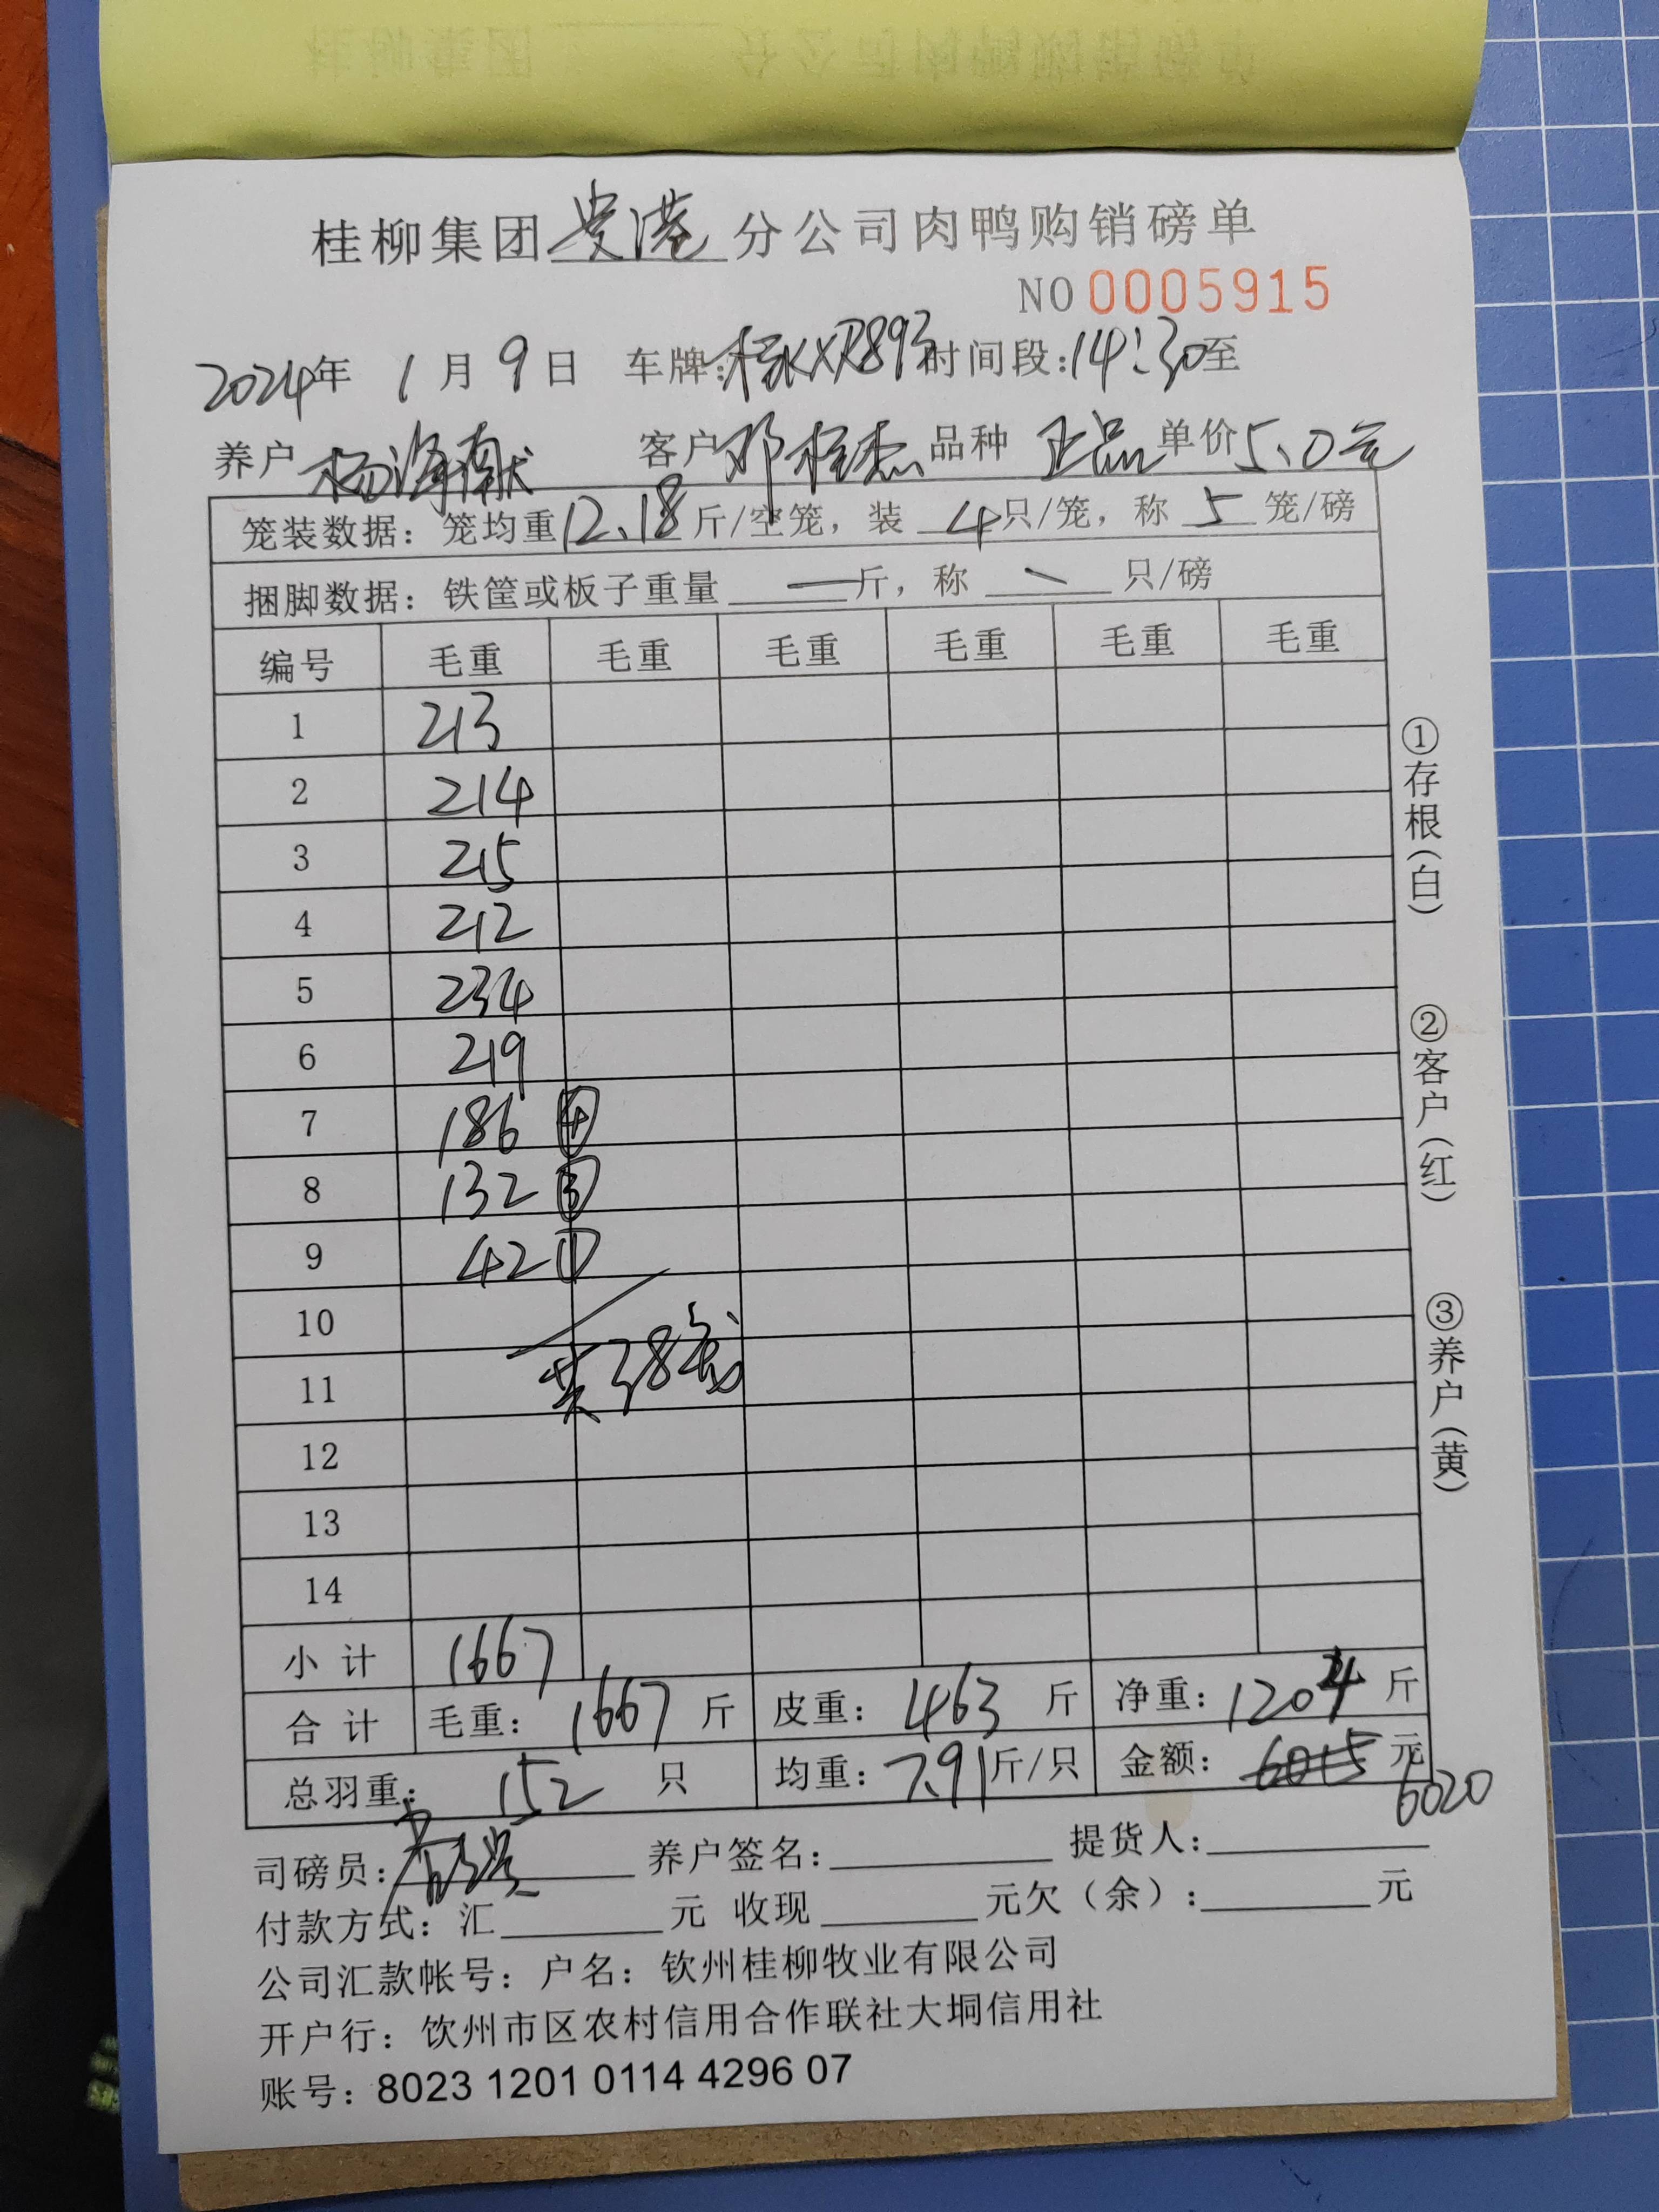 桂柳集团贵港分公司肉鸭购销磅单
NO 0005915
2024年 1月9日 车牌:桂KXR893时间段:14:30至
养户 杨海献 客户邓桂杰品种 正品 单价5.0元
笼装数据:笼均重12.18斤/空笼,装 4只/笼,称 5 笼/磅
捆脚数据:铁筐或板子重量 — 斤,称 — 只/磅
编号 毛重 毛重 毛重 毛重 毛重 毛重
1 213
2 214
3 215
4 212
5 234
6 219
7 186 ④
8 132 ③
9 42 ①
10
11 共38笼
12
13
14
小计 1667
合计 毛重: 1667 斤 皮重: 463 斤 净重: 1204 斤
总羽重: 152 只 均重: 7.91斤/只 金额: 6015 元
6020
司磅员: 养户签名: 提货人:
付款方式:汇 元 收现 元欠(余): 元
公司汇款帐号:户名:钦州桂柳牧业有限公司
开户行:饮州市区农村信用合作联社大垌信用社
账号:8023 1201 0114 4296 07
①存根(白)
②客户(红)
③养户(黄)